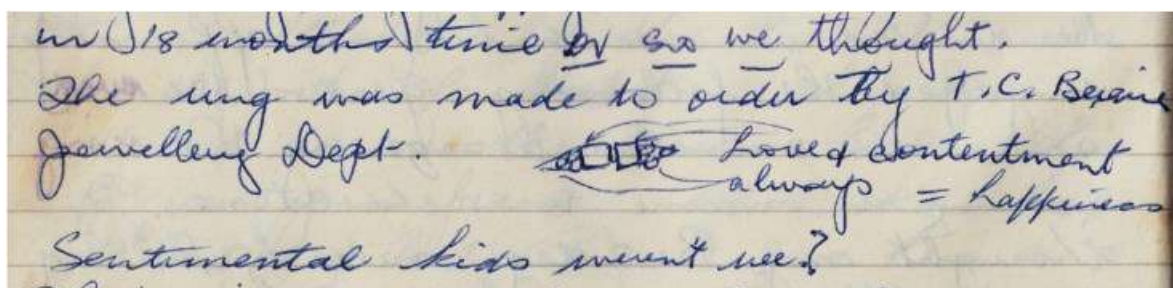 in 18 months time or so we thought.
The ring was made to order by T.C. Beirne
Jewellery Dept. Love & contentment
always = happiness
Sentimental kids weren't we?